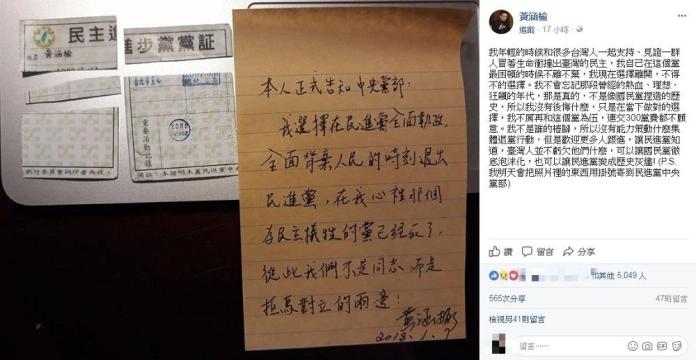 民主進步黨黨証
黃涵榆
重要活動記錄
2008
本人正式告知中央黨部：
我選擇在民進黨全面執政、
全面背棄人民的時刻退出
民進黨，在我心裡那個
為民主犧牲的黨已經死了，
從此我們不是同志，而是
拒馬對立的兩邊！
黃涵榆
2018.1.9
黃涵榆
追蹤 · 17 小時 ·
我年輕的時候和很多台灣人一起支持、見證一群
人冒著生命衝撞出臺灣的民主，我自己在這個黨
最困頓的時候不離不棄，我現在選擇離開，不得
不的選擇。我不會忘記那段曾經的熱血、理想、
狂飆的年代，那是真的，不是像國民黨捏造的歷
史，所以我沒有後悔什麼，只是在當下做對的選
擇，我不屑再和這個黨為伍，連交300黨費都不願
意。我不是誰的樁腳，所以沒有能力氣動什麼集
體退黨行動，但是歡迎更多人跟進，讓民進黨知
道，臺灣人並不虧欠他們什麼，可以讓國民黨徹
底泡沫化，也可以讓民進黨變成歷史灰燼! (P.S.
我明天會把照片裡的東西用掛號寄到民進黨中央
黨部)
讚
留言
分享
和其他 5,049 人
565次分享
47則留言
檢視另41則留言
留言......